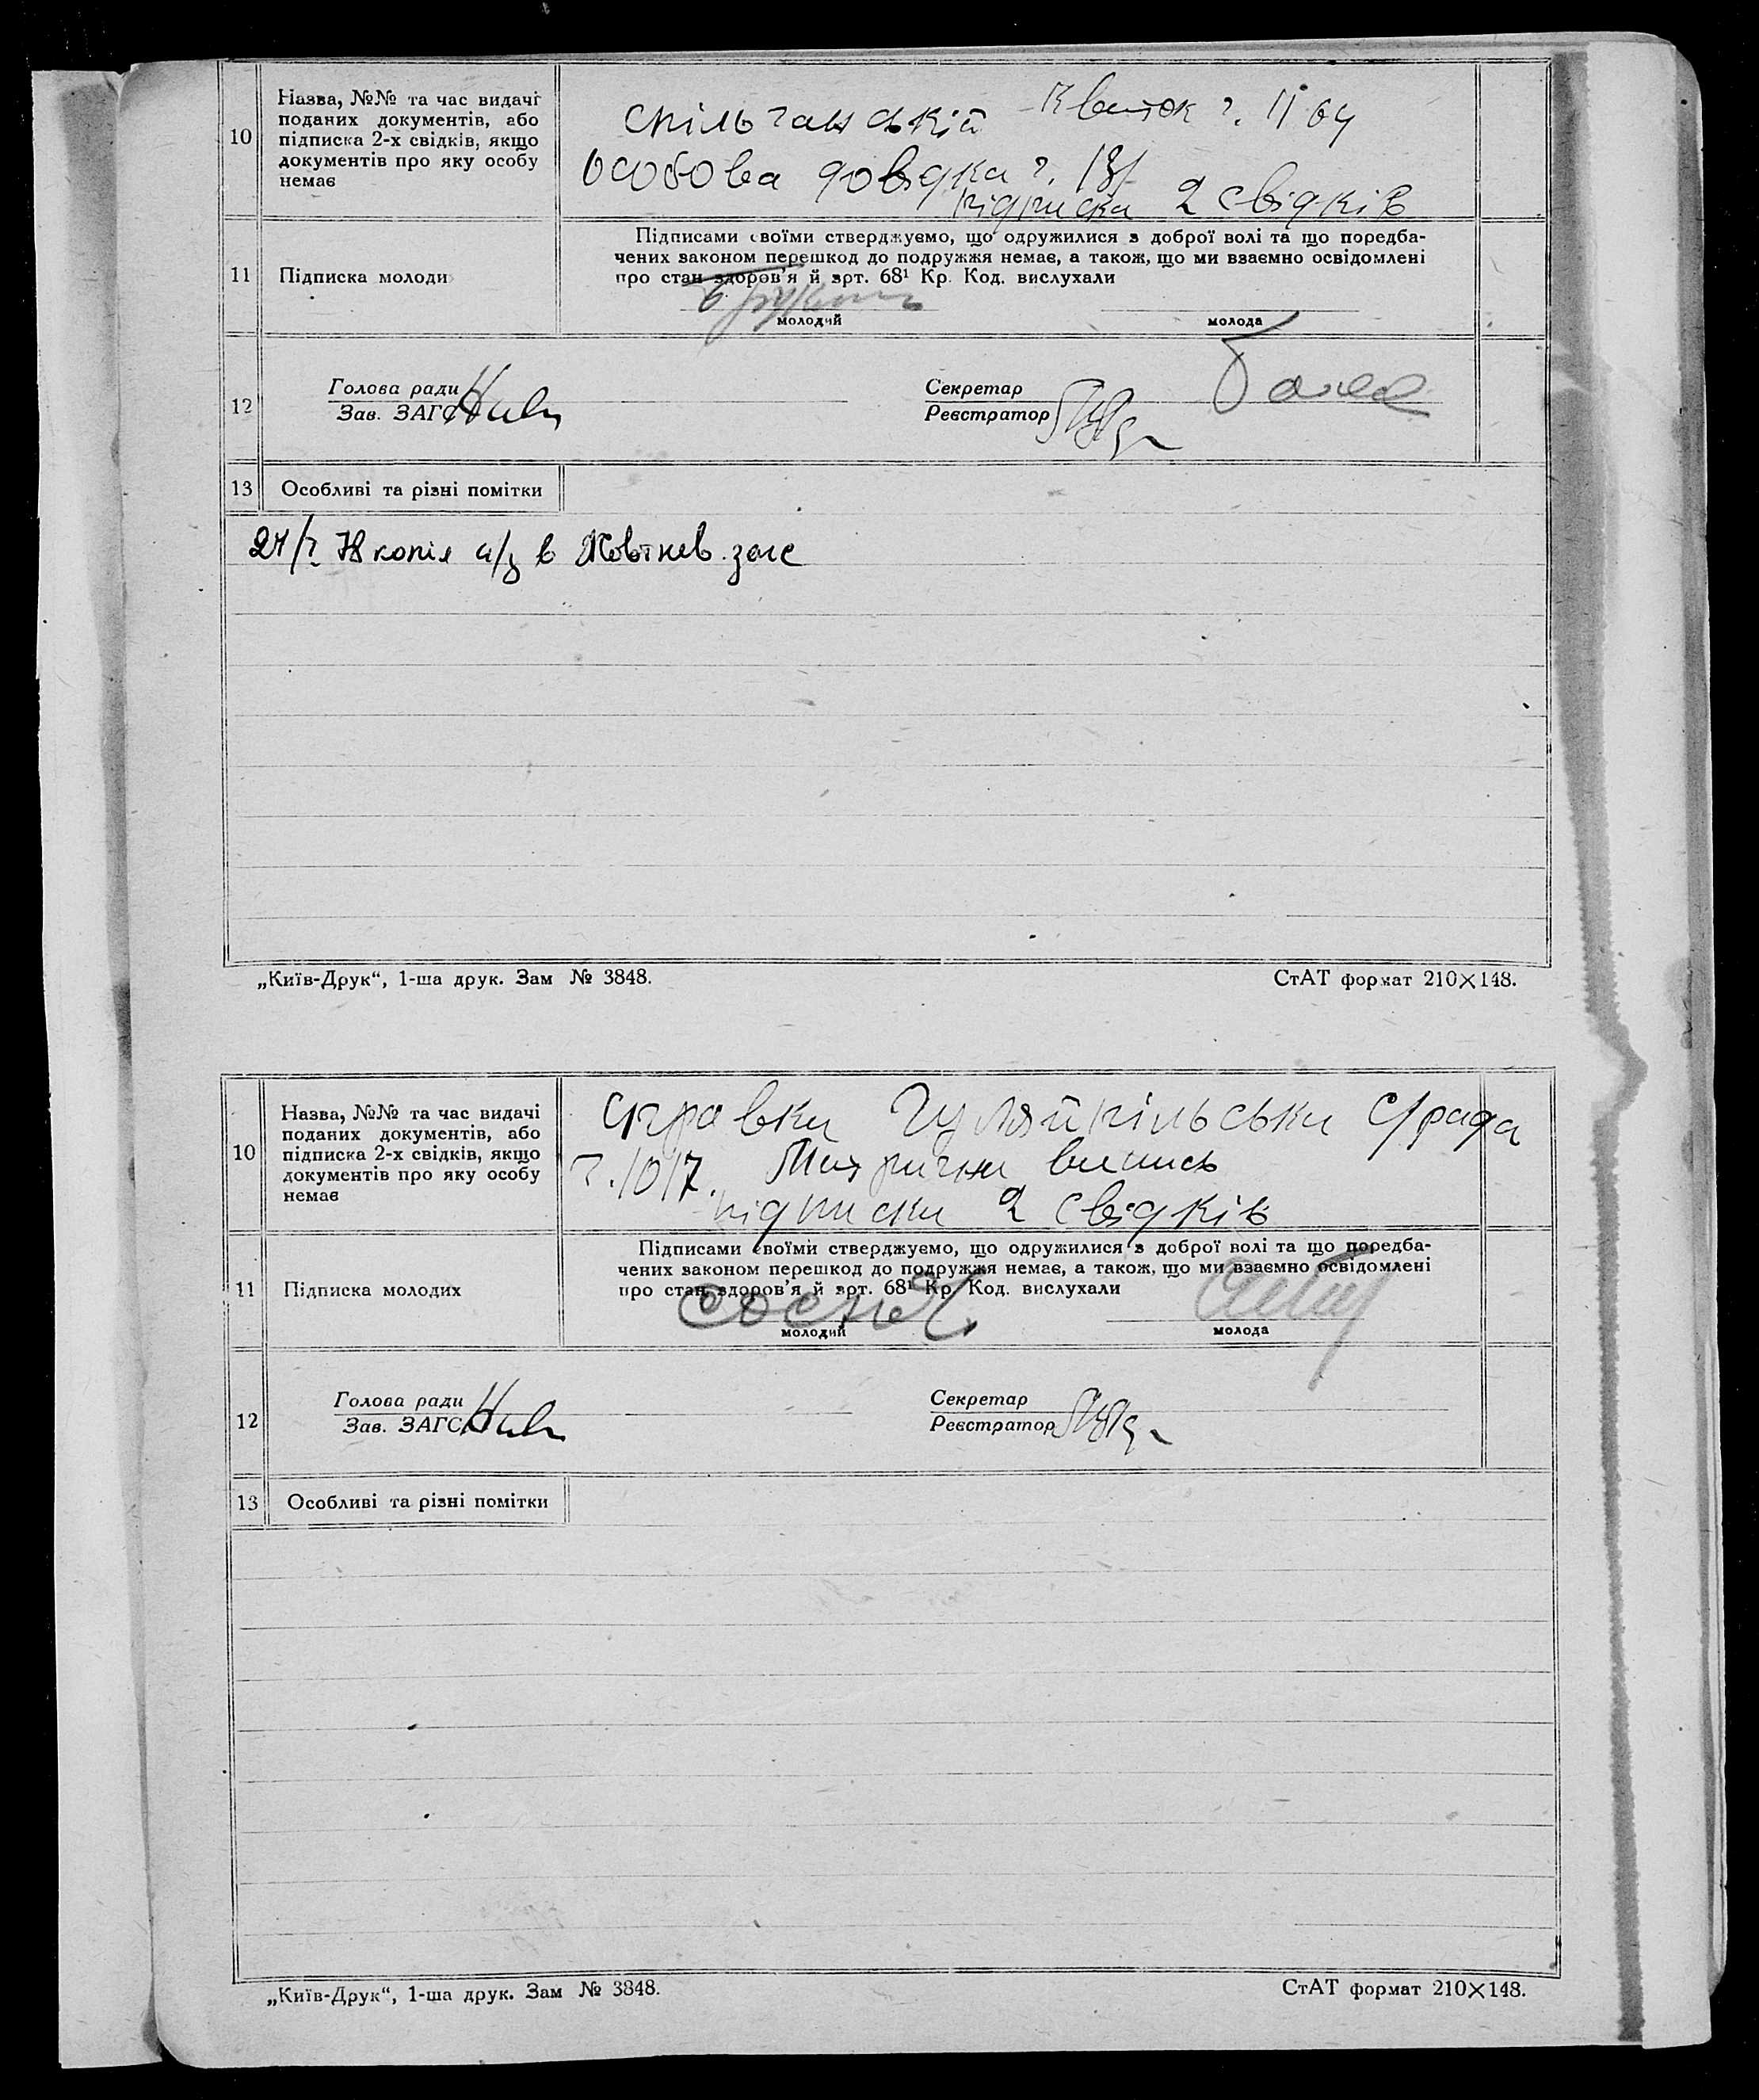 10
Назва, №№ та час видачі
поданих документів, або
підписка 2-х свідків, якщо
документів про яку особу
немає
спільчанській квиток ч. 1164
особова довідка ч. 131
підписка 2 свідків
11
Підписка молоди
Підписами своїми стверджуємо, що одружилися з доброї волі та що поредба-
чених законом перешкод до подружжя немає, а також, що ми взаємно освідомлені
про стан здоров'я й арт. 68¹ Кр. Код. вислухали
молодий
молода
12
Голова ради
Зав. ЗАГС
Секретар
Реєстратор
13
Особливі та різні помітки
копія а/з в Жовтнев. загс
„Київ-Друк“, 1-ша друк. Зам № 3848.
СтАТ формат 210×148.
10
Назва, №№ та час видачі
поданих документів, або
підписка 2-х свідків, якщо
документів про яку особу
немає
справки Гуляйпільська с/рада
ч. 1017. Метрични випись
підписки 2 свідків
11
Підписка молодих
Підписами своїми стверджуємо, що одружилися з доброї волі та що поредба-
чених законом перешкод до подружжя немає, а також, що ми взаємно освідомлені
про стан здоров'я й арт. 68¹ Кр. Код. вислухали
молодий
молода
12
Голова ради
Зав. ЗАГС
Секретар
Реєстратор
13
Особливі та різні помітки
„Київ-Друк“, 1-ша друк. Зам № 3848.
СтАТ формат 210×148.